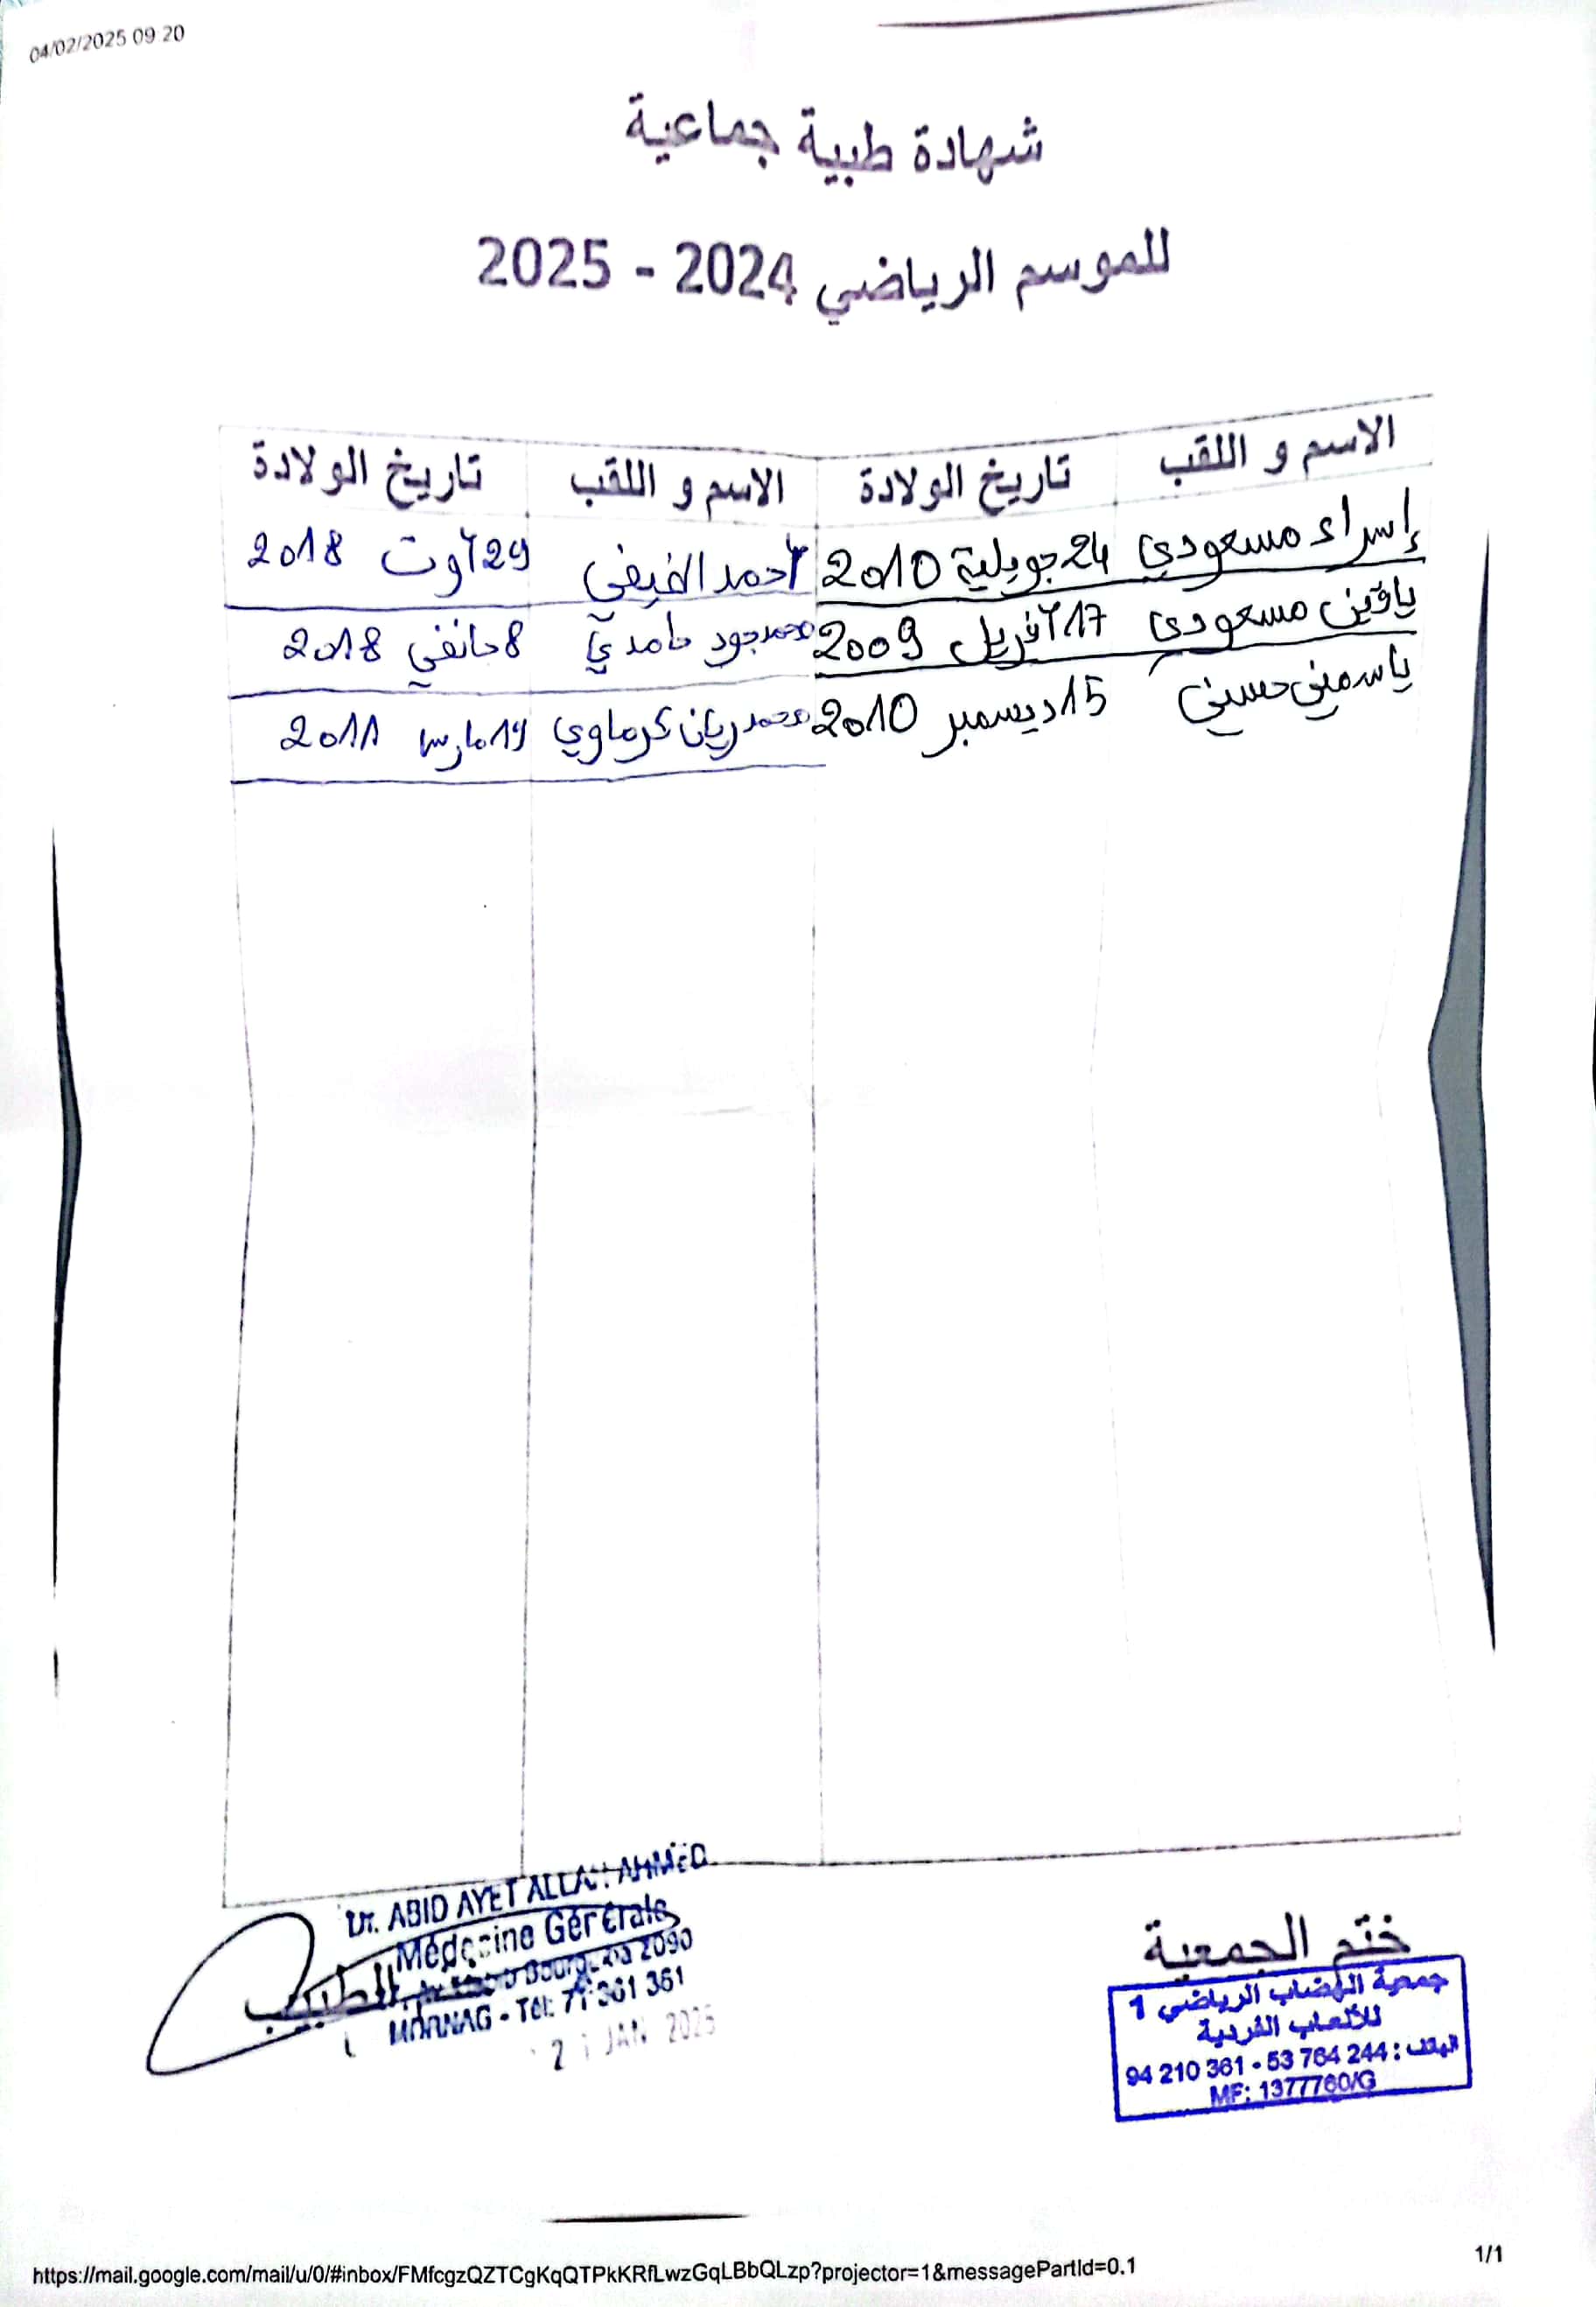 04/02/2025 09 20
شهادة طبية جماعية
للموسم الرياضي 2024 - 2025
الاسم و اللقب تاريخ الولادة الاسم و اللقب تاريخ الولادة
إسراء مسعودي 24 جويلية 2010 أحمد 29 آوت 2018
ياقين مسعودي 17 آفريل 2009 محمد جود حامدي 8 جانفي 2018
ياسمين حسني 15 ديسمبر 2010 محمد ريان كرماوي 19 مارس 2011
Dr. ABID AYET ALLAH AHMED
Médecine Générale
الطبيب
2090
MORNAG - Tél: 71 361 361
JAN 2025
ختم الجمعية
جمعية الهضاب الرياضي 1
للألعاب الفردية
الهاتف : 244 764 53 - 361 210 94
MF: 1377760/G
https://mail.google.com/mail/u/0/#inbox/FMfcgzQZTCgKqQTPkKRfLwzGqLBbQLzp?projector=1&messagePartId=0.1
1/1